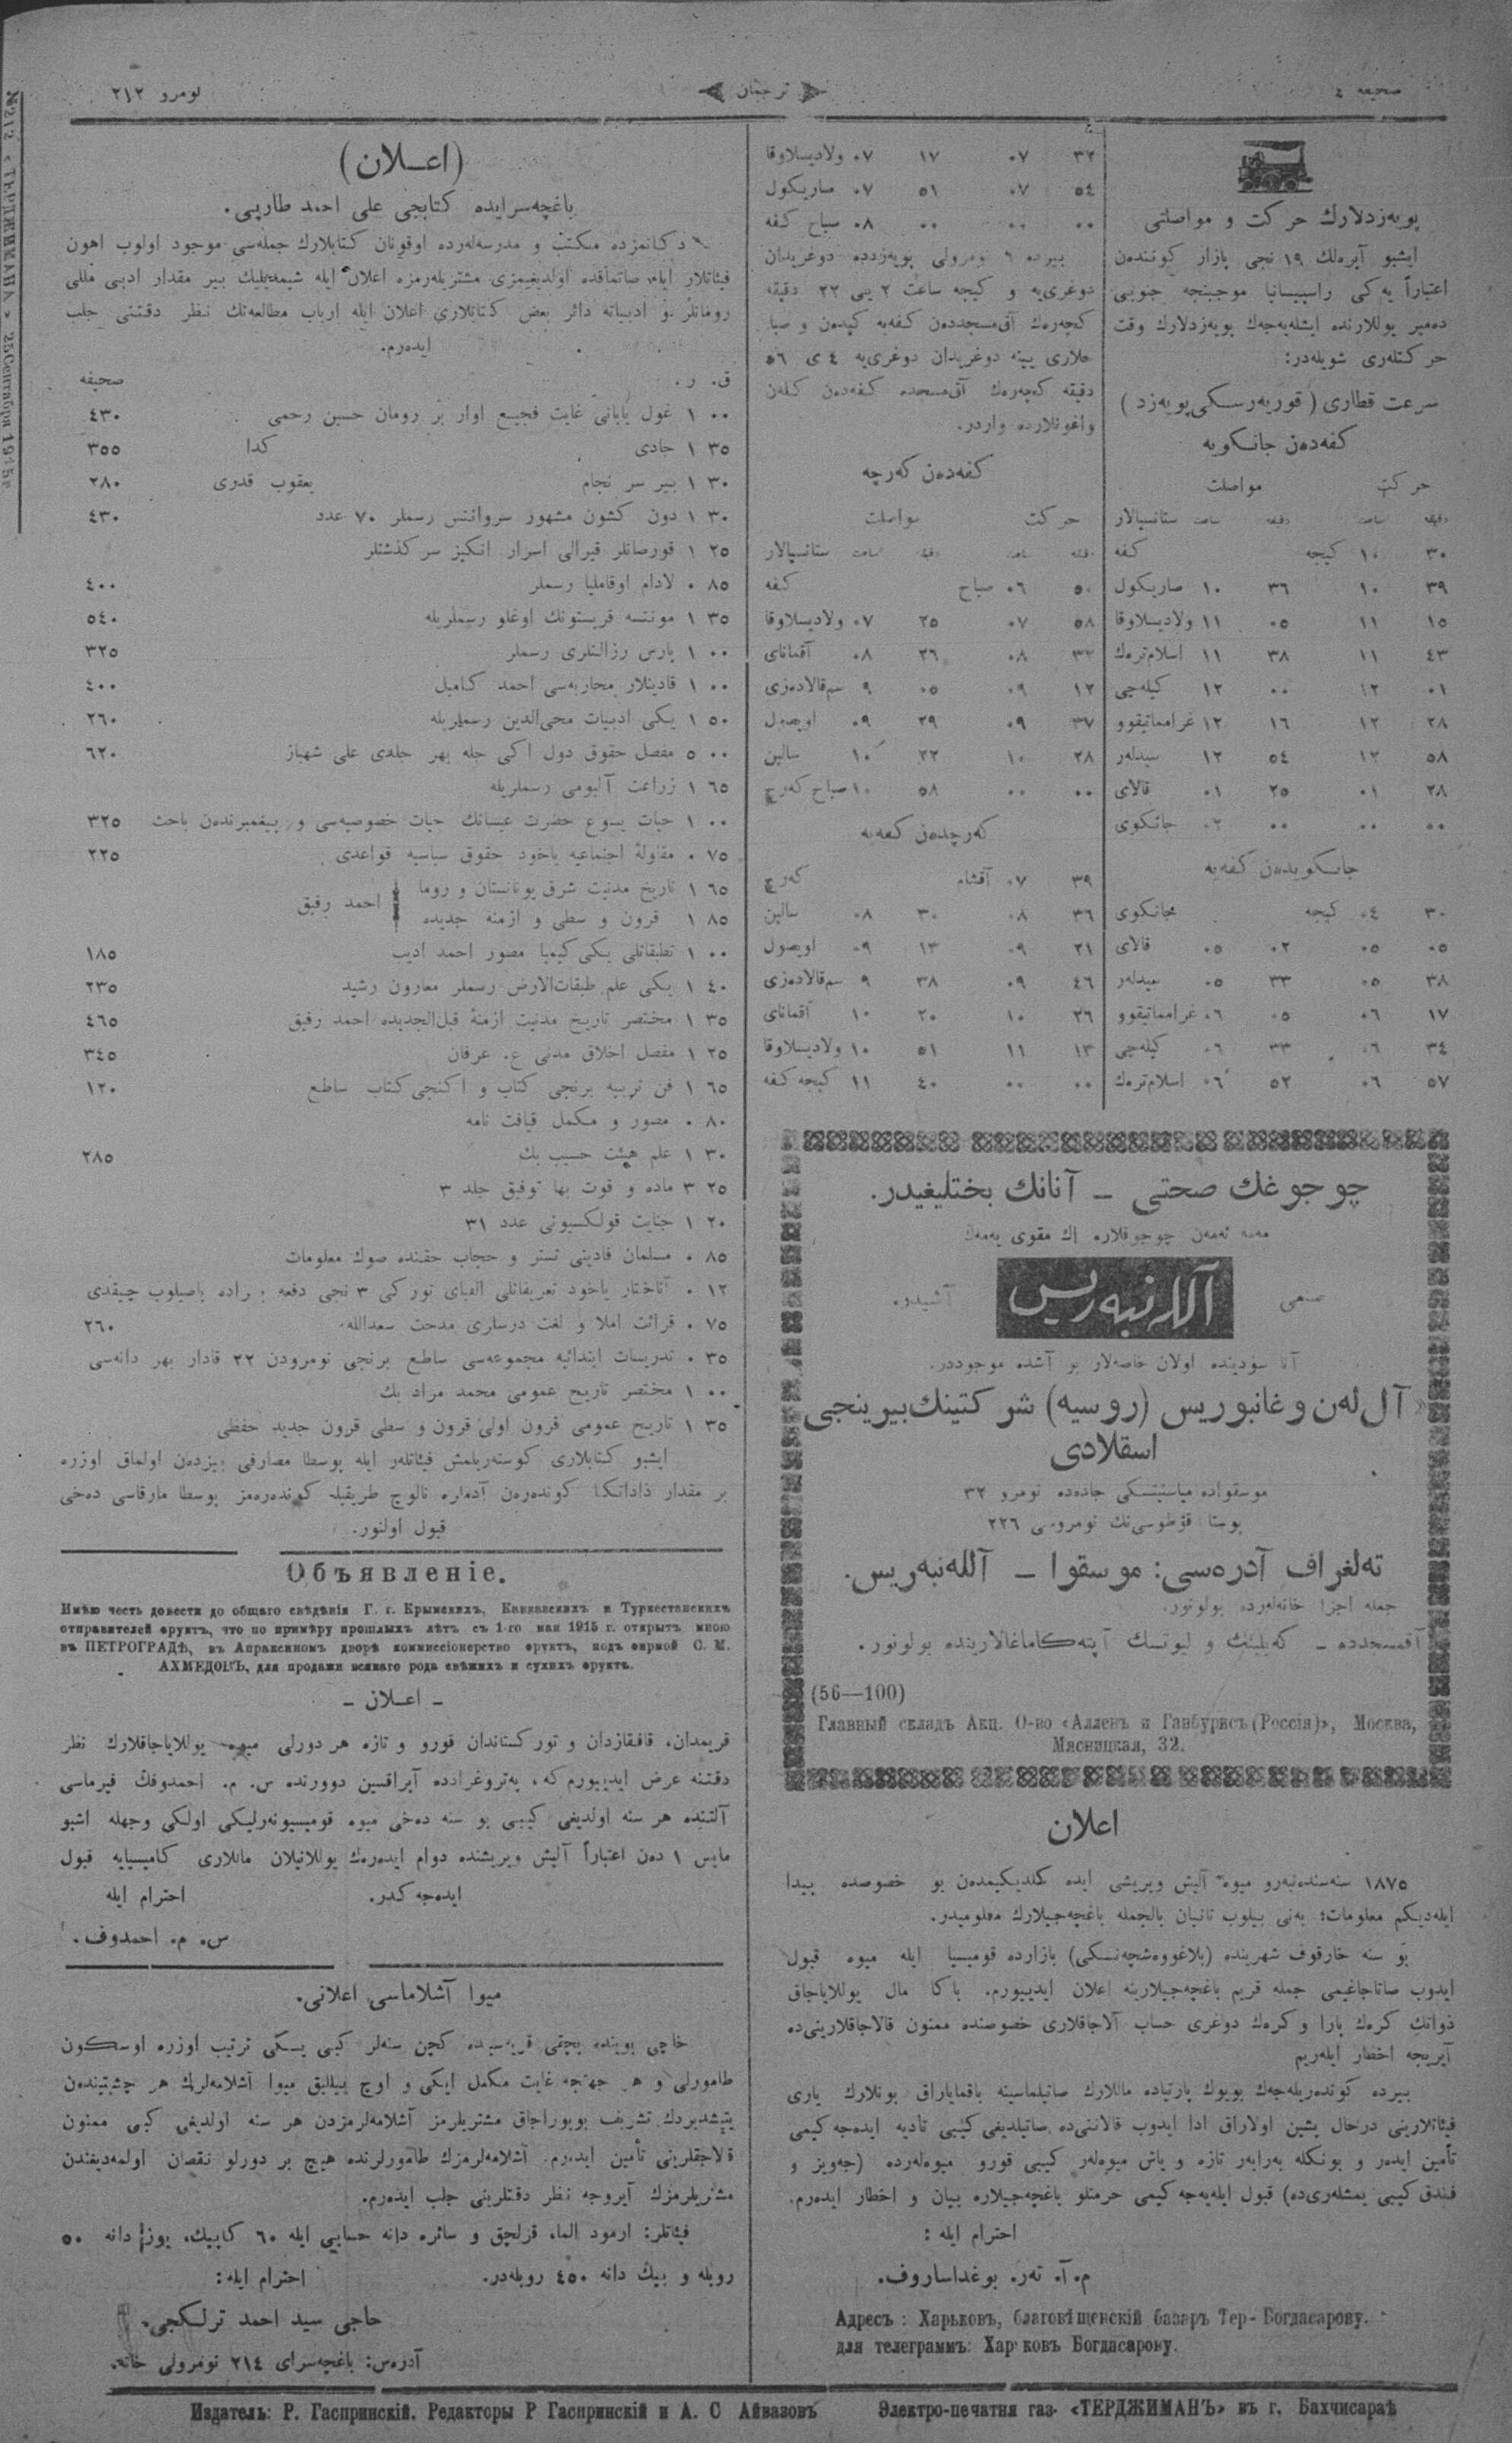 صحیفه ٤
ترجمان
نومرو ٢١٢
№212 «ТЕРДЖИМАНЪ» 25 Сентября 1915 г
پویەزدلارك حركت و مواصلتی
ایشبو آیرەلك ١٩ نجی پازار كوننده‌ن
اعتباراً یەكی راسپیسانیا موجبنجه جنوبی
دەمیر یوللارنده ایشله‌یه‌جك پویەزدلارك وقت
حركتلەری شویله‌در:
سرعت قطاری (قوریەرسكی پویەزد)
كفەدەن جانكویه
حركت مواصلت
دقیقه ساعت دقیقه ساعت ستانسیالار
٣٠ ١٠ كیجه كفه
٣٩ ١٠ ٣٦ ١٠ صاریكول
١٥ ١١ ٠٥ ١١ ولادیسلاوقا
٤٣ ١١ ٣٨ ١١ اسلام‌ترەك
٠١ ١٢ ٠٠ ١٢ كیله‌جی
٢٨ ١٢ ١٦ ١٢ غراماتیقوو
٥٨ ١٢ ٥٤ ١٢ سیدلەر
٢٨ ٠١ ٢٥ ٠١ قالای
٠٠ ٠٠ ٠٠ ٠٢ جانكوی
جانكویدەن كفەیه
٣٠ ٠٤ كیجه جانكوی
٠٥ ٠٥ ٠٢ ٠٥ قالای
٣٨ ٠٥ ٣٣ ٠٥ سیدلەر
١٧ ٠٦ ٠٥ ٠٦ غراماتیقوو
٣٤ ٠٦ ٣٣ ٠٦ كیله‌جی
٥٧ ٠٦ ٥٢ ٠٦ اسلام‌ترەك
٣٢ ٠٧ ١٧ ٠٧ ولادیسلاوقا
٥٤ ٠٧ ٥١ ٠٧ صاریكول
٠٠ ٠٠ ٠٠ ٠٨ صباح كفه
بیرده ٦ نومرولی پویەزدده دوغریدان
دوغری‌یه و كیجه ساعت ٢ یی ٢٢ دقیقه
كچەرەك آق‌مسجددەن كفەیه كیدەن و صبا
حلاری یینه دوغریدان دوغری‌یه ٤ ی ٥٦
دقیقه كچەرەك آق‌مسجده كفەدەن كلەن
واغونلارده واردر.
كفەدەن كەرچه
حركت مواصلت
دقیقه ساعت دقیقه ساعت ستانسیالار
٥٠ ٠٦ صباح كفه
٥٨ ٠٧ ٢٥ ٠٧ ولادیسلاوقا
٣٢ ٠٨ ٢٦ ٠٨ آقمانای
١٢ ٠٩ ٠٥ ٩ سم‌قالادەزی
٣٧ ٠٩ ٢٩ ٠٩ اویصول
٢٨ ١٠ ٢٢ ١٠ سالین
٠٠ ٠٠ ٥٨ ١٠ صباح كەرچ
كەرچدەن كفەیه
٣٩ ٠٧ آقشام كەرچ
٣٦ ٠٨ ٣٠ ٠٨ سالین
٢١ ٠٩ ١٣ ٠٩ اویصول
٤٦ ٠٩ ٣٨ ٩ سم‌قالادەزی
٢٦ ١٠ ٢٠ ١٠ آقمانای
١٣ ١١ ٥١ ١٠ ولادیسلاوقا
٠٠ ٠٠ ٤٠ ١١ كیجه كفه
چوجوغك صحتی – آنانك بختلیغیدر.
مەمه ئەمەن چوجوقلاره اك مقوی یەمەك
آللەنبەریس
آنا سودینده اولان خاصه‌لار بر آشده موجوددر.
«آل‌لەن و غانبوریس (روسیه) شركتینك بیرینجی
اسقلادی
موسقواده میاسنیتسكی جاده‌ده نومرو ٣٢
پوستا قوطوسی‌نك نومروسی ٢٢٦
تەلغراف آدرەسی: موسقوا – آللەنبەریس.
جمله اجزا خانه‌لەرده بولونور.
(56—100)
Главный складъ Акц. О-во «Алленъ и Ганбурисъ (Россія)», Москва,
Мясницкая, 32.
اعلان
١٨٧٥ سنه‌سنده‌نبەرو میوه آلیش ویریشی ایده كلدیكیمدەن بو خصوصده پیدا
ایلەدیكم معلومات؛ بەنی بیلوب تانیان بالجمله باغچه‌جیلارك معلومیدر.
بو سنه خارقوف شهرینده (بلاغووەشچەنسكی) بازارده قومیسیا ایله میوه قبول
ایدوب صاتاجاغیمی جمله قریم باغچه‌جیلارینه اعلان ایدییورم. باكا مال یوللایاجاق
ذواتك كرەك پارا و كرەك دوغری حساب آلاجاقلاری خصوصنده ممنون قالاجاقلارینی‌ده
آیریجه اخطار ایلەریم
بیرده كوندەریله‌جك بویوك پارتیاده ماللارك صاتیلماسینه باقمایاراق بونلارك یاری
فیئاتلارینی درحال پشین اولاراق ادا ایدوب قالاننی‌ده صاتیلدیغی كیبی تأدیه ایده‌جه كیمی
تأمین ایدەر و بونكله بەرابەر تازه و یاش میوەلەر كیبی قورو میوەلەرده (جەویز و
فندق كیبی یمشلەری‌ده) قبول ایله‌یه‌جه كیمی حرمتلو باغچه‌جیلاره بیان و اخطار ایدەرم.
احترام ایله :
م. آ. تەر. بوغداساروف.
Адресъ : Харьковъ, благовѣщенскій базаръ Тер- Богдасарову.
для телеграммъ: Харьковъ Богдасарову.
(اعلان)
باغچه‌سرایده كتابجی علی احمد طارپی.
دكانمزده مكتب و مدرسه‌لەرده اوقونان كتابلارك جمله‌سی موجود اولوب اهون
فیئاتلار ایله صاتماقده اولدیغیمزی مشتریلەرمزه اعلان ایله شیمدیلیك بیر مقدار ادبی مللی
رومانلر و ادبیاته دائر بعض كتابلاری اعلان ایله ارباب مطالعه‌نك نظر دقتنی جلب
ایدەرم.
ق. ر. صحیفه
٠٠ ١ غول یابانی غایت فجیع اوار بر رومان حسین رحمی ٤٣٠
٣٥ ١ جادی كذا ٣٥٥
٣٠ ١ بیر سر نجام یعقوب قدری ٢٨٠
٣٠ ١ دون كشون مشهور سروانتس رسملر ٧٠ عدد ٤٣٠
٢٥ ١ قورصانلر قیرالی اسرار انكیز سركذشتلر
٨٥ ٠ لادام اوقاملیا رسملر ٤٠٠
٣٥ ١ مونتسه قریستونك اوغلو رسملریله ٥٤٠
٠٠ ١ پارس رزالتلری رسملر ٣٢٥
٠٠ ١ قادینلار محاربه‌سی احمد كامیل ٤٠٠
٥٠ ١ یكی ادبیات محی‌الدین رسملریله ٢٦٠
٠٠ ٥ مفصل حقوق دول اكی جلد بهر جلدی علی شهباز ٦٢٠
٦٥ ١ زراعت آلبومی رسملریله
٠٠ ١ حیات یسوع حضرت عیسانك حیات خصوصیه‌سی و پیغمبرندەن باحث ٣٢٥
٧٥ ٠ مقاولۀ اجتماعیه یاخود حقوق سیاسیه قواعدی ٢٢٥
٦٥ ١ تاریخ مدنیت شرق یونانستان و روما
٨٥ ١ قرون و سطی و ازمنه جدیده احمد رفیق
٠٠ ١ تطبقاتلی یكی كیمیا مصور احمد ادیب ١٨٥
٤٠ ١ یكی علم طبقات‌الارض رسملر معارون رشید ٢٣٥
٣٥ ١ مختصر تاریخ مدنیت ازمنۀ قبل‌الجدیده احمد رفیق ٤٦٥
٢٥ ١ مفصل اخلاق مدنی ع. عرفان ٣٤٥
٦٥ ١ فن تربیه برنجی كتاب و اكنجی كتاب ساطع ١٢٠
٨٠ ٠ مصور و مكمل قیافت نامه
٣٠ ١ علم هیئت حسیب بك ٢٨٥
٢٥ ٣ ماده و قوت بها توفیق جلد ٣
٢٠ ١ جنایت قولكسیونی عدد ٣١
٨٥ ٠ مسلمان قادینی تستر و حجاب حقنده صوك معلومات
١٢ ٠ آناختار یاخود تعریفاتلی الفبای توركی ٣ نجی دفعه باصیلوب چیقدی
٧٥ ٠ قرائت املا و لغت درسلری مدحت سعدالله ٢٦٠
٣٥ ٠ تدریسات ابتدائیه مجموعه‌سی ساطع برنجی نومرودن ٢٢ قادار بهر دانه‌سی
٠٠ ١ مختصر تاریخ عمومی محمد مراد بك
٣٥ ١ تاریخ عمومی قرون اولی قرون و سطی قرون جدید حفظی
ایشبو كتابلاری كوسته‌ریلمش فیئاتلەر ایله پوسطا مصارفی بیزدەن اولماق اوزره
بر مقدار ذاداتكا كوندەرەن آدمله نالوج طریقیله كوندەرەمز پوسطا مارقاسی دەخی
قبول اولنور.
Объявленіе.
Имѣю честь довести до общаго свѣдѣнія Г. г. Крымскихъ, Кавказскихъ и Туркестанскихъ
отправителей фруктъ, что по примѣру прошлыхъ лѣтъ съ 1-го мая 1915 г. открытъ мною
въ ПЕТРОГРАДѢ, въ Апраксиномъ дворѣ коммиссіонерство фруктъ, подъ фирмой С. М.
АХМЕДОВЪ, для продажи всякаго рода свѣжихъ и сухихъ фруктъ.
– اعلان –
قریمدان، قافقازدان و توركستاندان قورو و تازه هر دورلی میوه یوللایاجاقلارك نظر
دقتنه عرض ایدییورم كه، پەتروغرادده آپراقسین دوورنده س. م. احمدوفك فیرماسی
آلتنده هر سنه اولدیغی كیبی بو سنه دەخی میوه قومیسیونەرلیكی اولكی وجهله اشبو
مایس ١ دەن اعتباراً آلیش ویریشنده دوام ایدەرەك یوللانیلان ماللاری كامیسیایه قبول
ایده‌جه كدر. احترام ایله
س. م. احمدوف.
میوا آشلاماسی اعلانی.
خاچی بوینده بچقی قریه‌سیده كچن سنه‌لر كبی یسكی ترتیب اوزره اوسكون
طامورلی و هر جهتجه غایت مكمل ایكی و اوچ ییللیق میوا آشلامه‌لرك هر چشیتیندەن
یتیشدیردك تشریف بویوراجاق مشتریلرمز آشلامه‌لرمزدن هر سنه اولدیغی كبی ممنون
قلاجقلرینی تأمین ایدەرم. آشلامه‌لرمزك طامورلرنده هیچ بر دورلو نقصان اولمه‌دیغندن
مشتریلرمزك آیروجه نظر دقتلرینی جلب ایدەرم.
فیئاتلر: ارمود الما، قزلچق و سائره دانه حسابی ایله ٦٠ كاپیك، یوز دانه ٥٠
روبله و بیك دانه ٤٥٠ روبله‌در. احترام ایله:
حاجی سید احمد ترلكجی.
آدرەس: باغچه‌سرای ٢١٤ نومرولی خانه.
Издатель: Р. Гаспринскій. Редакторы Р Гаспринскій и А. С Айвазовъ
Электро-печатня газ. «ТЕРДЖИМАНЪ» въ г. Бахчисараѣ